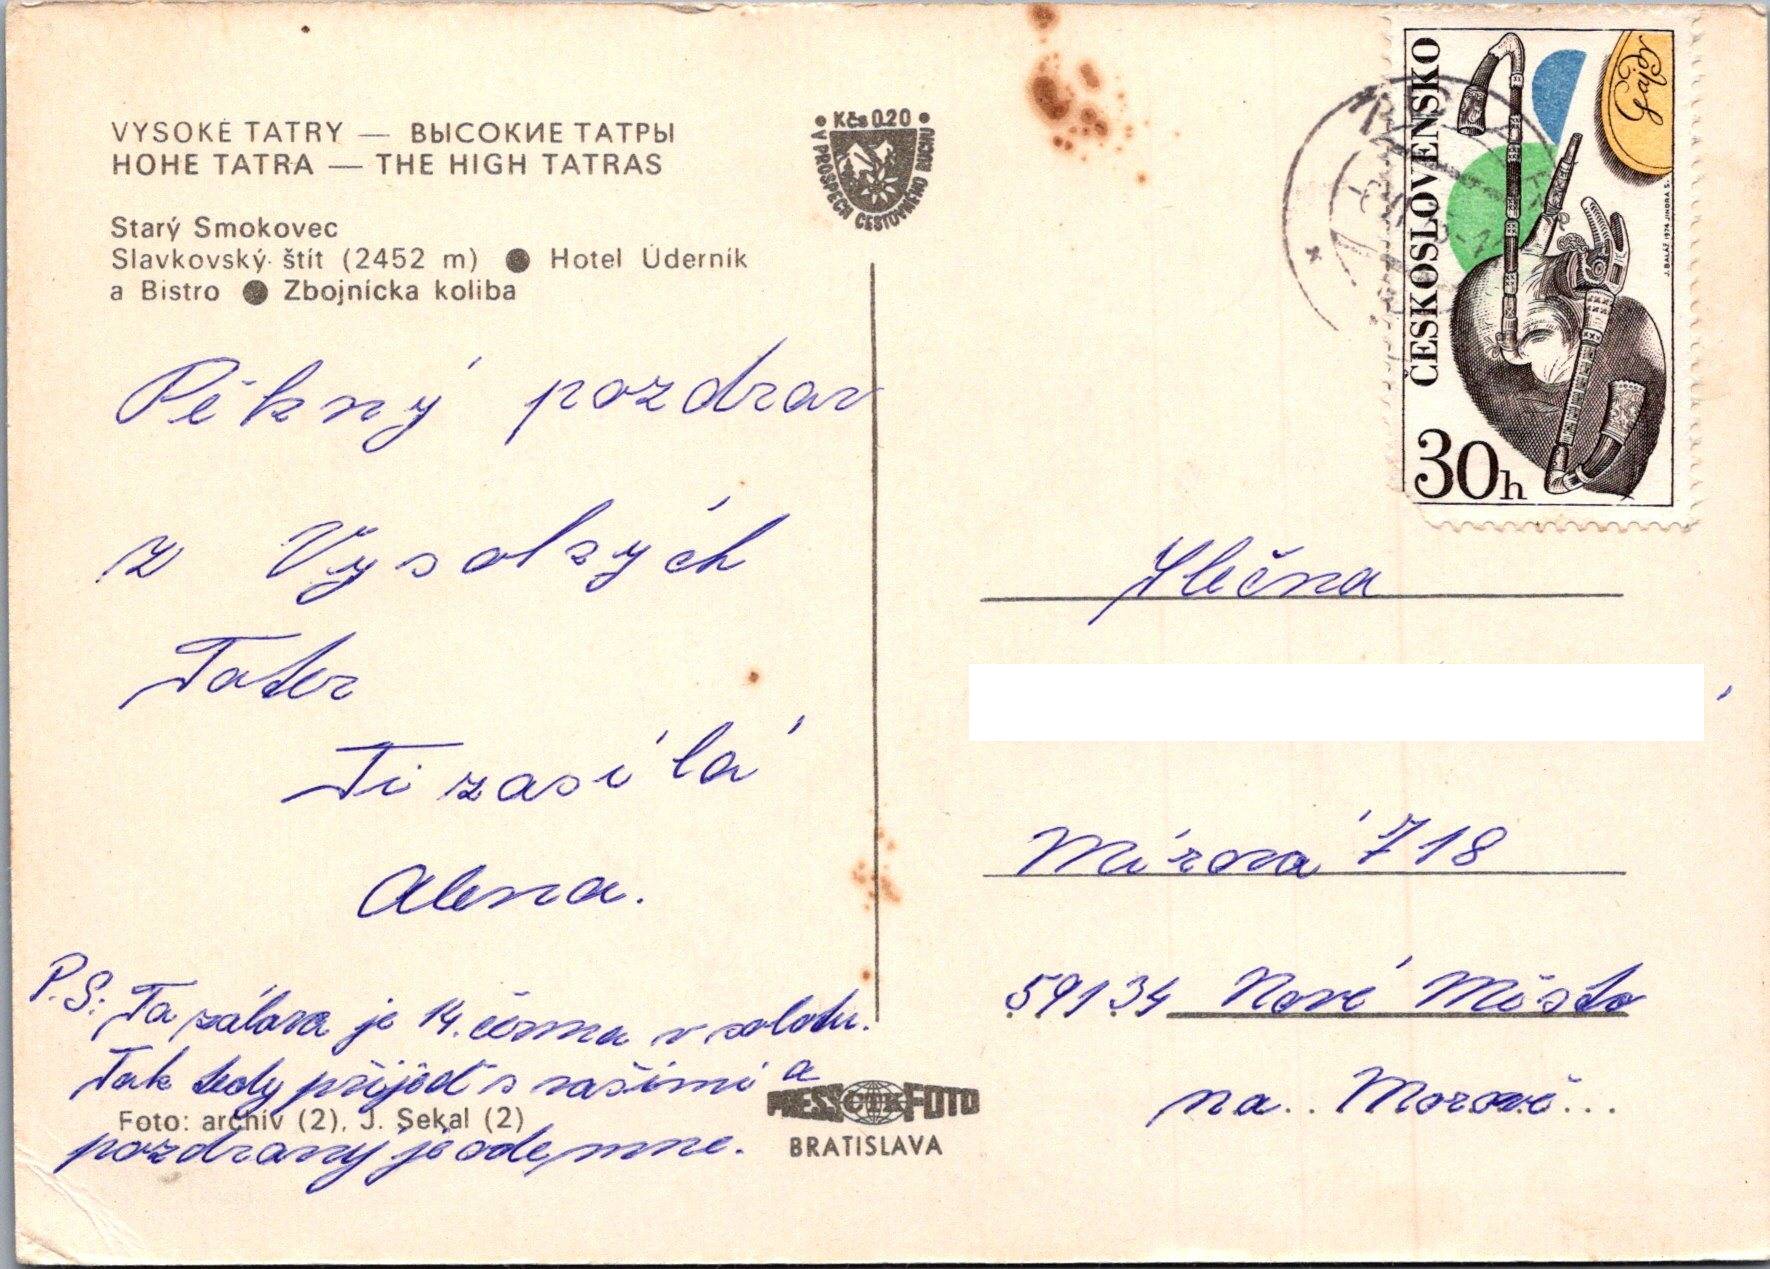 VYSOKÉ TATRY — ВЫСОКИЕ ТАТРЫ
HOHE TATRA — THE HIGH TATRAS
Starý Smokovec
Slavkovský štít (2452 m) ● Hotel Úderník
a Bistro ● Zbojnícka koliba
Pěkný pozdrav
z Vysokých
Tater
Ti zasílá
Alena.
P.S: Ta zálava je 14. června v sobotu.
Tak tedy přijeď s vašimi a
pozdravuj je ode mne.
Foto: archív (2), J. Sekal (2)
• Kčs 0.20 •
V PROSPECH CESTOVNÉHO RUCHU
PRESS ČTK FOTO
BRATISLAVA
ČESKOSLOVENSKO
30h
J. BALÁŽ 1974 JINDRA S.
Slečna
Mírová 718
59134 Nové Město
na.. Moravě...